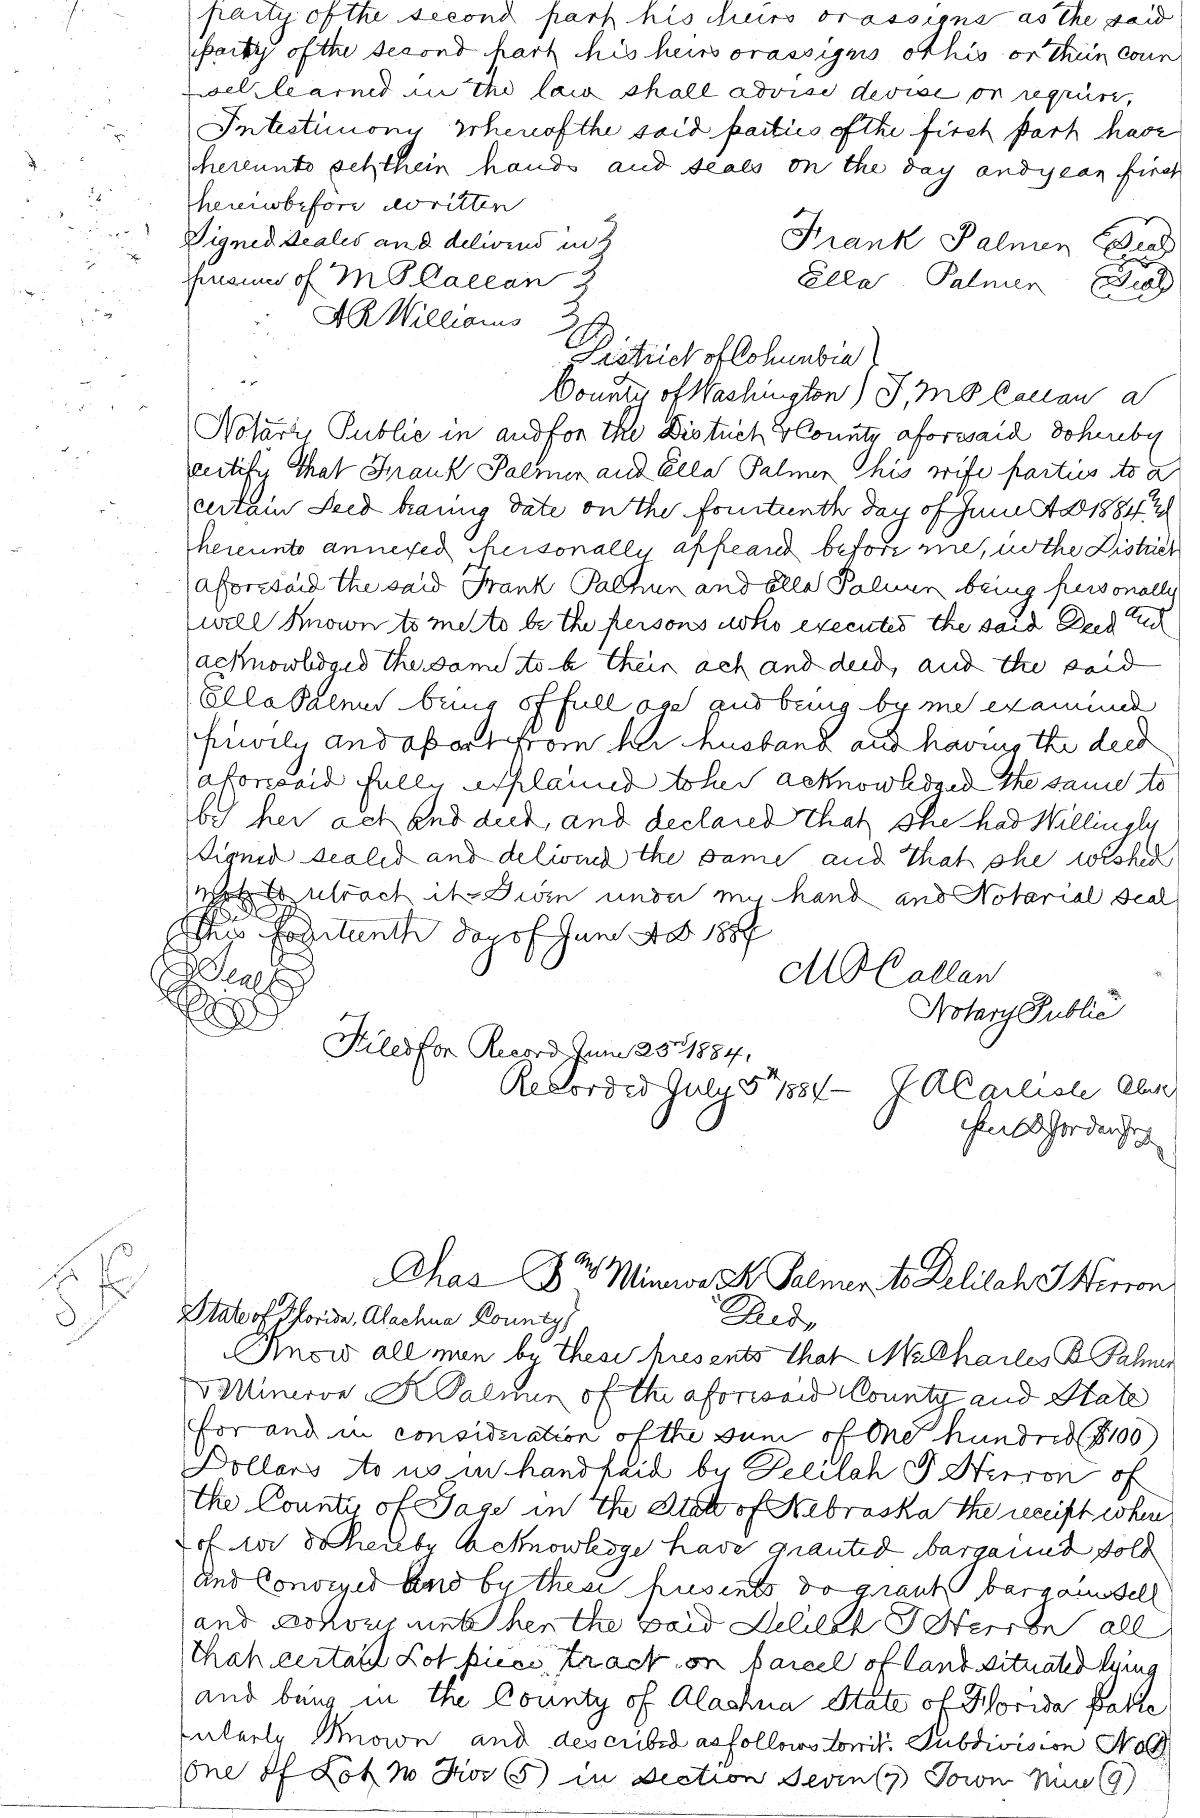 party of the second part his heirs or assigns as the said
party of the second part his heirs or assigns or his or their coun
sel learned in the law shall advise devise or require.
In testimony whereof the said parties of the first part have
hereunto set their hands and seals on the day and year first
hereinbefore written
Signed sealed and delivered in
presence of M P Callan
A R Williams
Frank Palmer Seal
Ella Palmer Seal
District of Columbia
County of Washington ) I, M P Callan a
Notary Public in and for the District & County aforesaid do hereby
certify that Frank Palmer and Ella Palmer his wife parties to a
certain Deed bearing date on the fourteenth day of June A D 1884 and
hereunto annexed personally appeared before me, in the District
aforesaid the said Frank Palmer and Ella Palmer being personally
well known to me to be the persons who executed the said Deed and
acknowledged the same to be their act and deed, and the said
Ella Palmer being of full age and being by me examined
privily and apart from her husband and having the deed
aforesaid fully explained to her acknowledged the same to
be her act and deed, and declared that she had Willingly
signed sealed and delivered the same and that she wished
not to retract it - Given under my hand and Notarial seal
this fourteenth day of June A D 1884
Seal
M P Callan
Notary Public
Filed for Record June 25th 1884.
Recorded July 5th 1884 - J A Carlisle Clerk
per
Chas B and Minerva K Palmer to Delilah T Herron
State of Florida, Alachua County} Deed
Know all men by these presents that We Charles B Palmer
& Minerva K Palmer of the aforesaid County and State
for and in consideration of the sum of One hundred ($100)
Dollars to us in hand paid by Delilah T Herron of
the County of Gage in the State of Nebraska the receipt where
of we do hereby acknowledge have granted bargained sold
and Conveyed and by these presents do grant bargain sell
and convey unto her the said Delilah T Herron all
that certain Lot piece tract or parcel of land situated lying
and being in the County of Alachua State of Florida partic
ularly known and described as follows to wit: Subdivision No
one of Lot No Five (5) in section Seven (7) Town Nine (9)